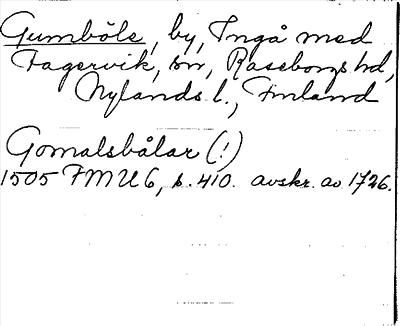 Gumböle, by, Ingå med
Fagervik, sn, Raseborgs hd,
Nylands l., Finland
Gomalsbålar (!)
1505 FMU 6, s. 410. avskr. av 1726.